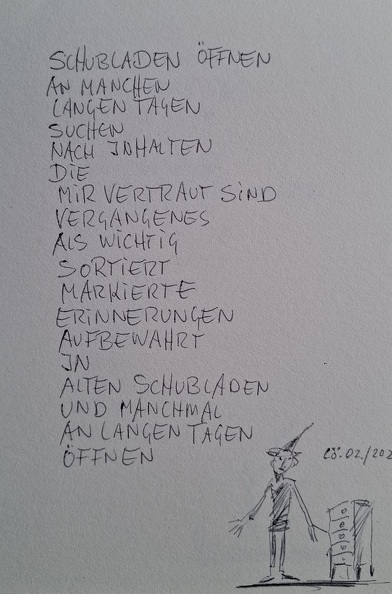 SCHUBLADEN ÖFFNEN
AN MANCHEN
LANGEN TAGEN
SUCHEN
NACH INHALTEN
DIE
MIR VERTRAUT SIND
VERGANGENES
ALS WICHTIG
SORTIERT
MARKIERTE
ERINNERUNGEN
AUFBEWAHRT
IN
ALTEN SCHUBLADEN
UND MANCHMAL
AN LANGEN TAGEN
ÖFFNEN